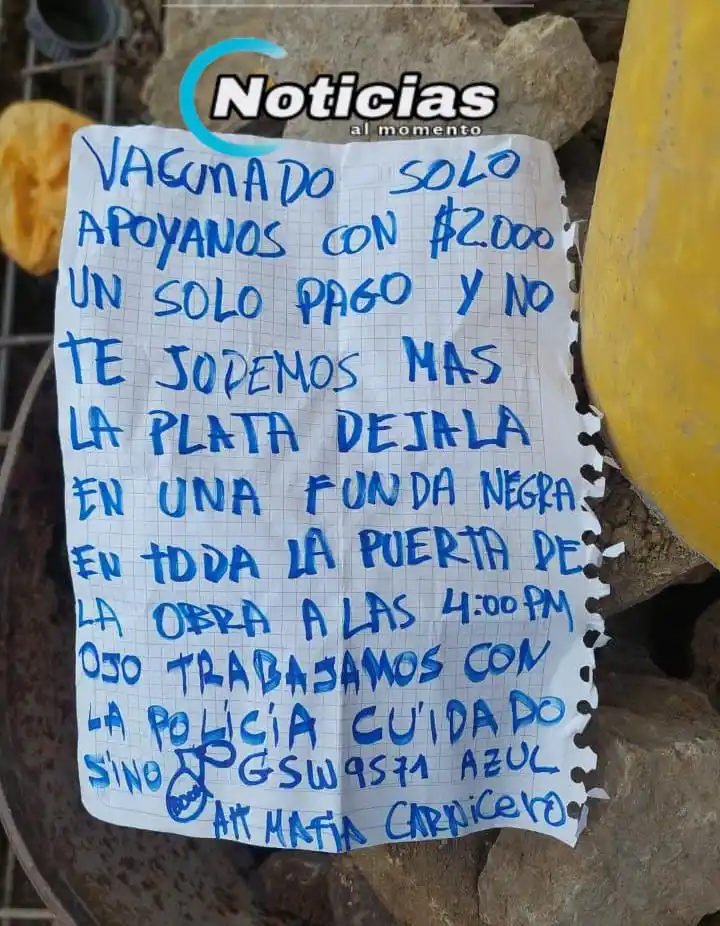 Noticias
al momento
VACUNADO SOLO
APOYANOS CON $2.000
UN SOLO PAGO Y NO
TE JODEMOS MAS
LA PLATA DEJALA
EN UNA FUNDA NEGRA
EN TODA LA PUERTA DE
LA OBRA A LAS 4:00 PM
OJO TRABAJAMOS CON
LA POLICÍA CUIDADO
SINO GSW9571 AZUL
ATT MAFIA CARNICERO